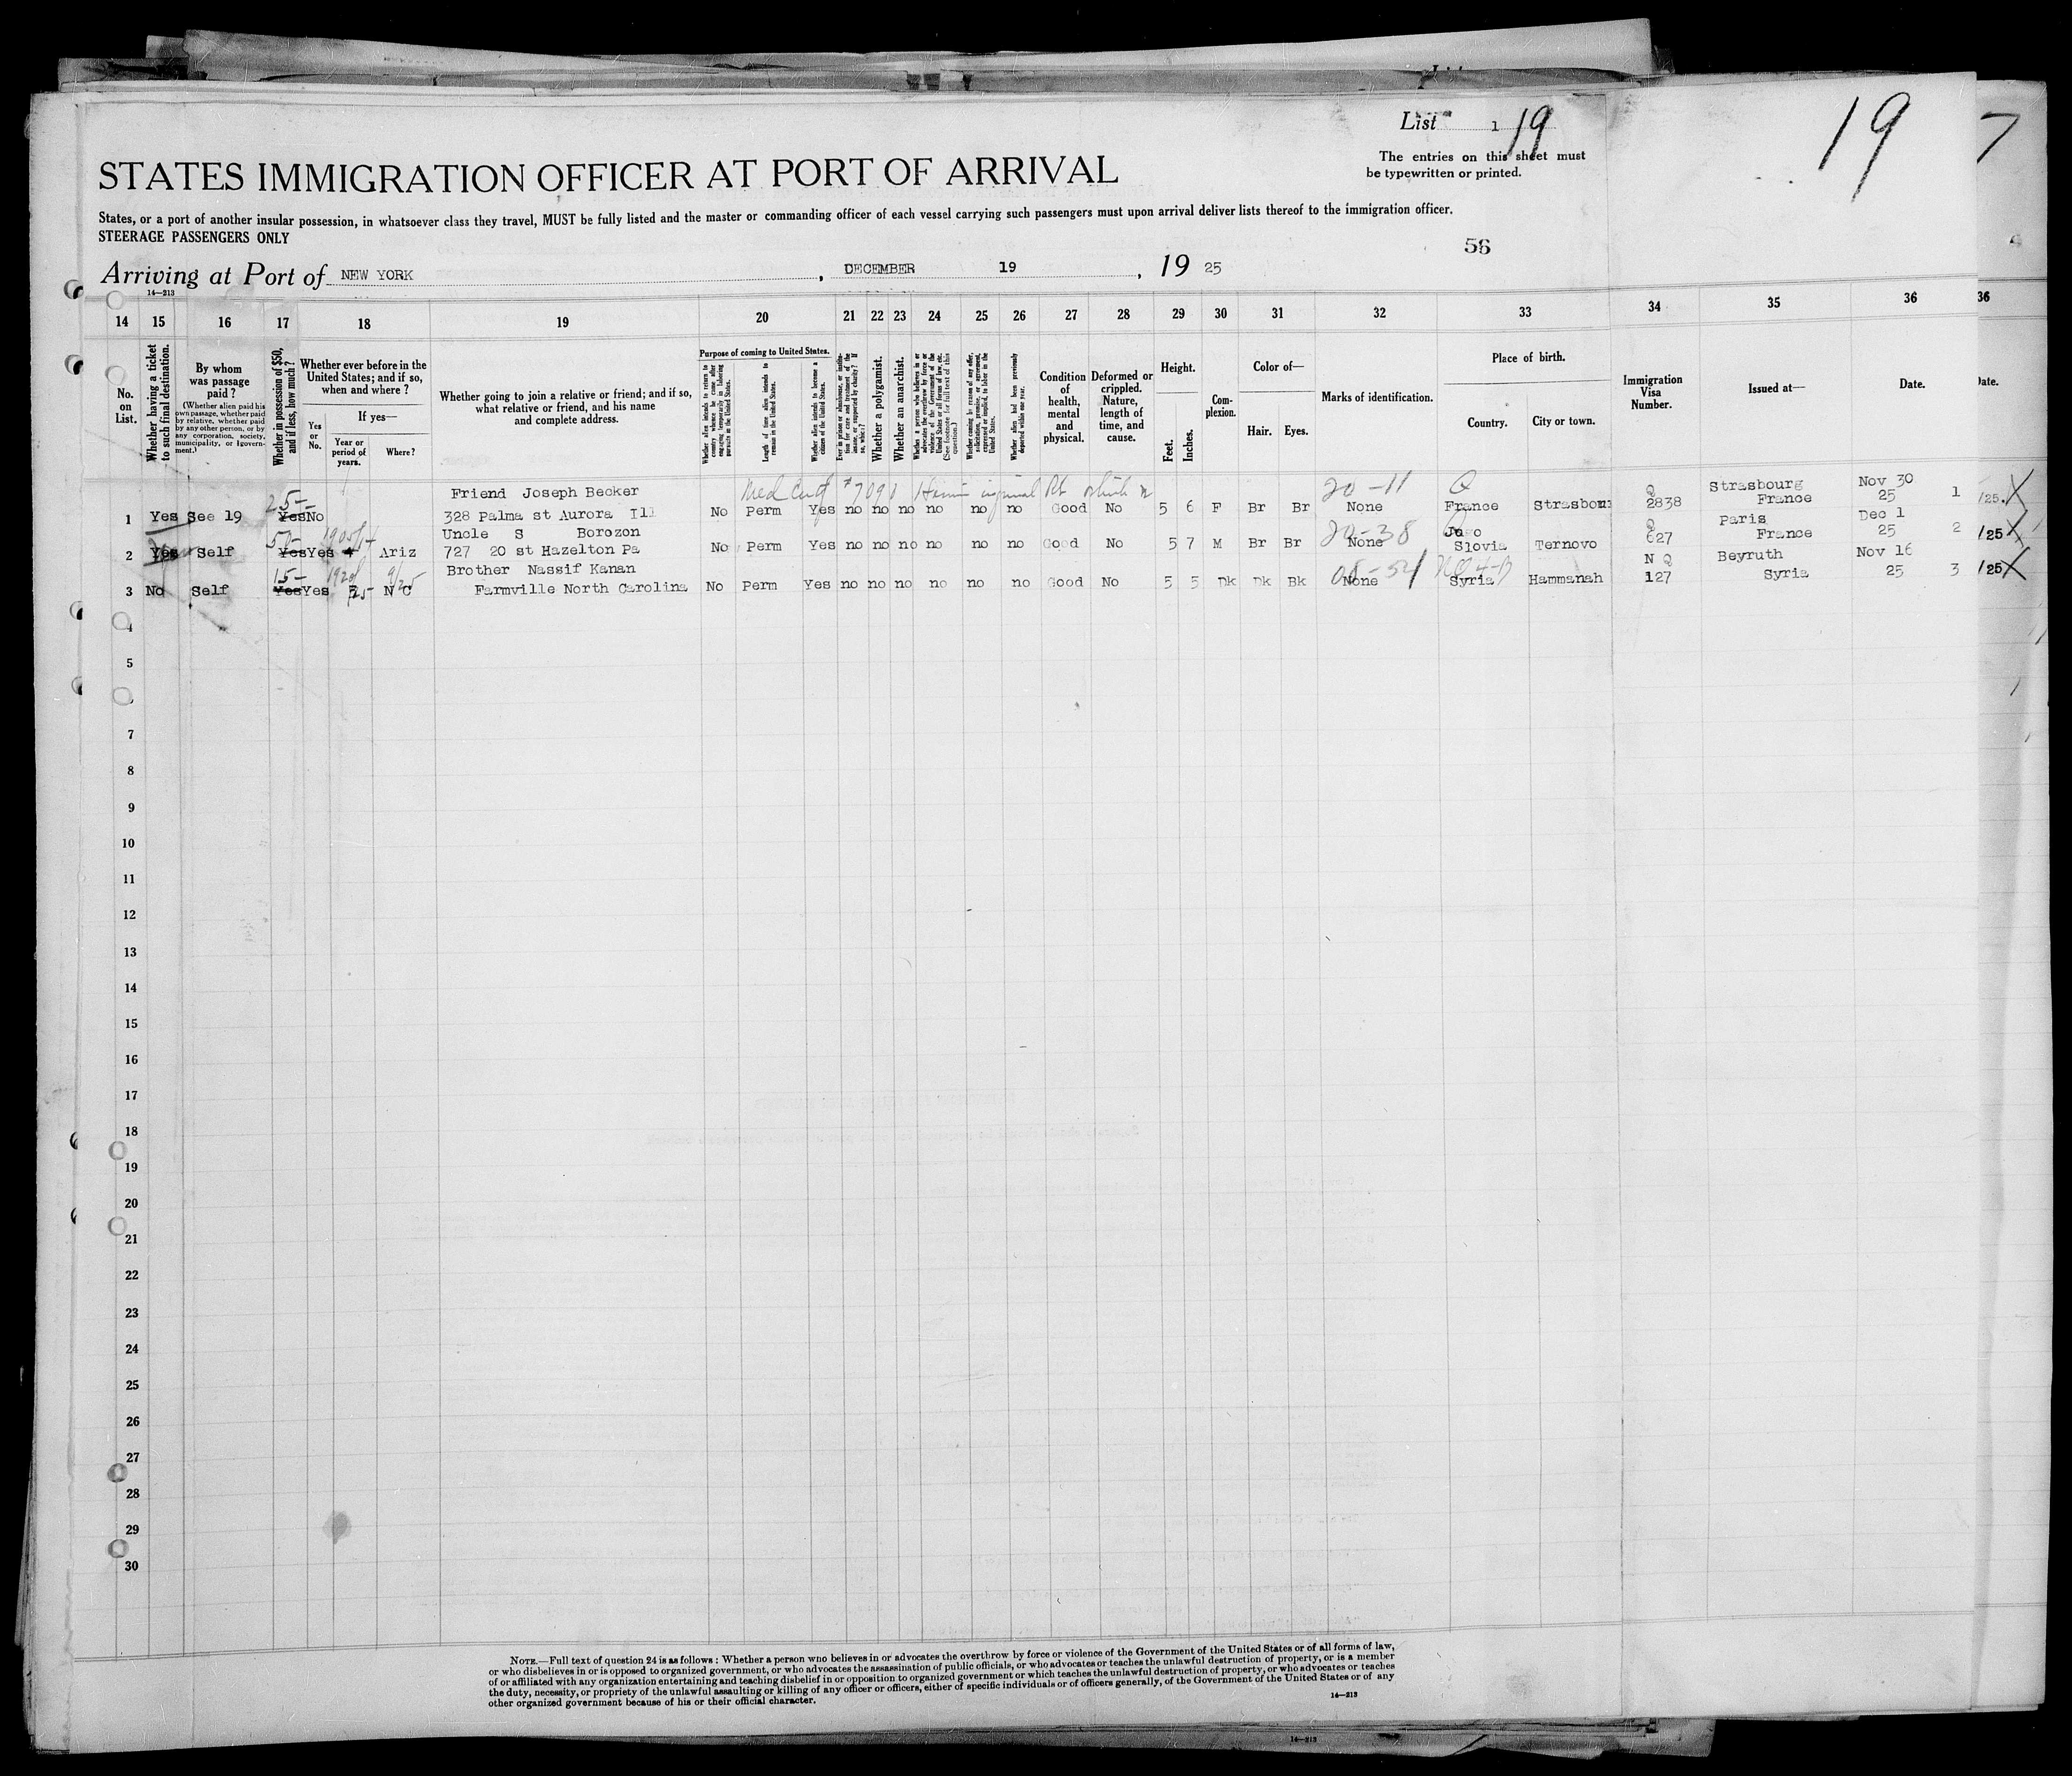 List 1 19
19
7
The entries on this sheet must
be typewritten or printed.
STATES IMMIGRATION OFFICER AT PORT OF ARRIVAL
States, or a port of another insular possession, in whatsoever class they travel, MUST be fully listed and the master or commanding officer of each vessel carrying such passengers must upon arrival deliver lists thereof to the immigration officer.
STEERAGE PASSENGERS ONLY
56
Arriving at Port of NEW YORK, DECEMBER 19, 19 25
14—213
14 15 16 17 18 19 20 21 22 23 24 25 26 27 28 29 30 31 32 33 34 35 36 36
No. on List.
Whether having a ticket to such final destination.
By whom was passage paid?
(Whether alien paid his own passage, whether paid by relative, whether paid by any other person, or by any corporation, society, municipality, or government.)
Whether in possession of $50, and if less, how much?
Whether ever before in the United States; and if so, when and where?
Yes or No.
If yes—
Year or period of years.
Where?
Whether going to join a relative or friend; and if so, what relative or friend, and his name and complete address.
Purpose of coming to United States.
Whether alien intends to return to country whence he came after engaging temporarily in laboring pursuits in the United States.
Length of time alien intends to remain in the United States.
Whether alien intends to become a citizen of the United States.
Ever in prison or almshouse, or institution for care and treatment of the insane, or supported by charity? If so, which?
Whether a polygamist.
Whether an anarchist.
Whether a person who believes in or advocates the overthrow by force or violence of the Government of the United States or all forms of law, etc. (See footnote for full text of this question.)
Whether coming by reason of any offer, solicitation, promise, or agreement, expressed or implied, to labor in the United States.
Whether alien had been previously deported within one year.
Condition of health, mental and physical.
Deformed or crippled. Nature, length of time, and cause.
Height.
Feet.
Inches.
Complexion.
Color of—
Hair.
Eyes.
Marks of identification.
Place of birth.
Country.
City or town.
Immigration Visa Number.
Issued at—
Date.
Date.
25— Friend Joseph Becker Med Cert #7090 20-11 Q Q Strasbourg Nov 30
1 Yes See 19 Yes No 328 Palma st Aurora Ill No Perm Yes no no no no no no Good No 5 6 F Br Br None France Strasbour 2838 France 25 1 /25. X
50— Uncle S Borozon 20-38 Jugo Q Paris Dec 1
2 Yes Self Yes Yes 4 Ariz 727 20 st Hazelton Pa No Perm Yes no no no no no no Good No 5 7 M Br Br None Slovia Ternovo 627 France 25 2 /25 X
15— 1920/ 9/25 Brother Nassif Kanan N Q Beyruth Nov 16
3 No Self Yes Yes 25 N C Farmville North Carolina No Perm Yes no no no no no no Good No 5 5 Dk Dk Bk None Syria Hammanah 127 Syria 25 3 /25 X
4
5
7
8
9
10
11
12
13
14
15
16
17
18
19
20
21
22
23
24
25
26
27
28
29
30
NOTE.—Full text of question 24 is as follows: Whether a person who believes in or advocates the overthrow by force or violence of the Government of the United States or of all forms of law,
or who disbelieves in or is opposed to organized government, or who advocates the assassination of public officials, or who advocates or teaches the unlawful destruction of property, or is a member
of or affiliated with any organization entertaining and teaching disbelief in or opposition to organized government or which teaches the unlawful destruction of property, or who advocates or teaches
the duty, necessity, or propriety of the unlawful assaulting or killing of any officer or officers, either of specific individuals or of officers generally, of the Government of the United States or of any
other organized government because of his or their official character.
14—213
14—213